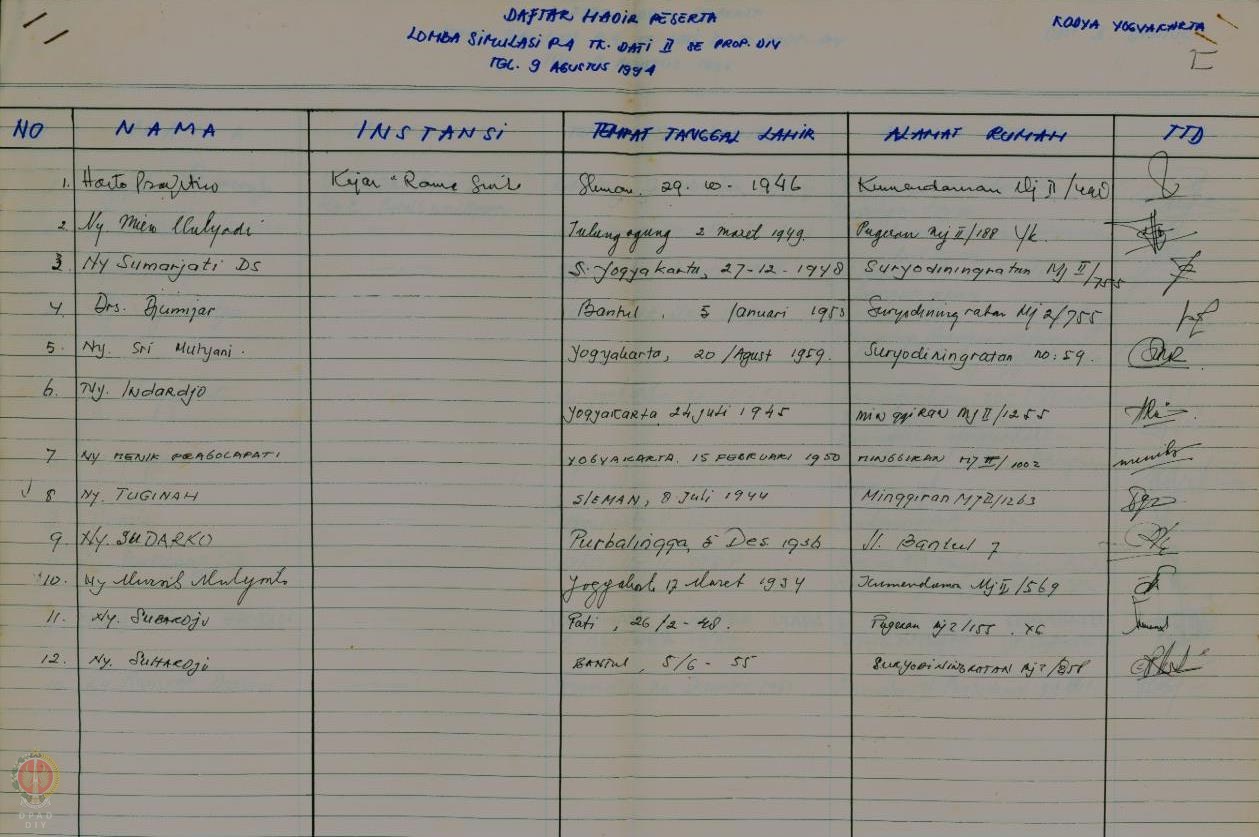 DAFTAR HADIR PESERTA
LOMBA SIMULASI P4 TK. DATI II SE PROP. DIY
TGL. 9 AGUSTUS 1994
KODYA YOGYAKARTA
I
NO NAMA INSTANSI TEMPAT TANGGAL LAHIR ALAMAT RUMAH TTD
1. Harto Kejar "Rame Sleman, 29. 10 - 1946 Kumendaman Mj II/490
2. Ny Mien Mulyadi Tulungagung 2 maret 1949. Pugeran Mj II/188 Yk.
3. Ny Sumarjati DS Yogyakarta, 27-12-1948 Suryodiningratan Mj II/755
4. Drs. Djumijar Bantul, 5 Januari 1953 Suryodiningratan Mj 2/755
5. Ny. Sri Mulyani. Yogyakarta, 20/Agust 1959. Suryodiningratan no: 59.
6. Ny. Indardjo
Yogyakarta 24 juli 1945 Minggiran Mj II/1255
7 NY MENIK PRAGOLAPATI YOGYAKARTA. 15 FEBRUARI 1950 MINGGIRAN MJ II/1002 menik
8 Ny. TUGINAH SLEMAN, 8 Juli 1944 Minggiran MJ II/1263
9. Ny. SUDARKO Purbalingga, 5 Des. 1936 Jl. Bantul 7
10. Ny Mulyono Yogyakarta 17 Maret 1934 Kumendaman Mj II/569
11. Ny. SUBARDJO Pati, 26/2-48. Pugeran Mj 2/155. YG
12. Ny. SUHARDJO BANTUL, 5/6-55 SURYODININGRATAN Mj 2/858
DPAD
DIY